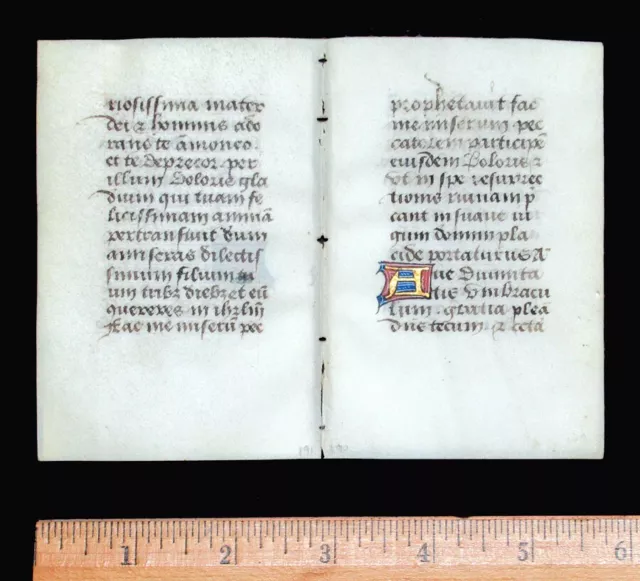 riosissima mater
dei & hominis ado
rans te amoneo
et te deprecor per
illum doloris gla
dium qui tuam fe
licissimam animā
pertransiuit dum
amiseras dilectis
simum filium tu
um tribꝫ diebꝫ et eū
quereres in ihrlm̄
Fac me miserū pec
prophetauit fac
me miserum pec
catorem participē
eiusdem doloris &
vt in spe resurrec
tionis
cant in suaue iu
gum domini pla
cide portaturus A
ue diuinita
tis vmbracu
lum . gratia plea
dn̄s tecum . & cetā
191 190
1 2 3 4 5 6